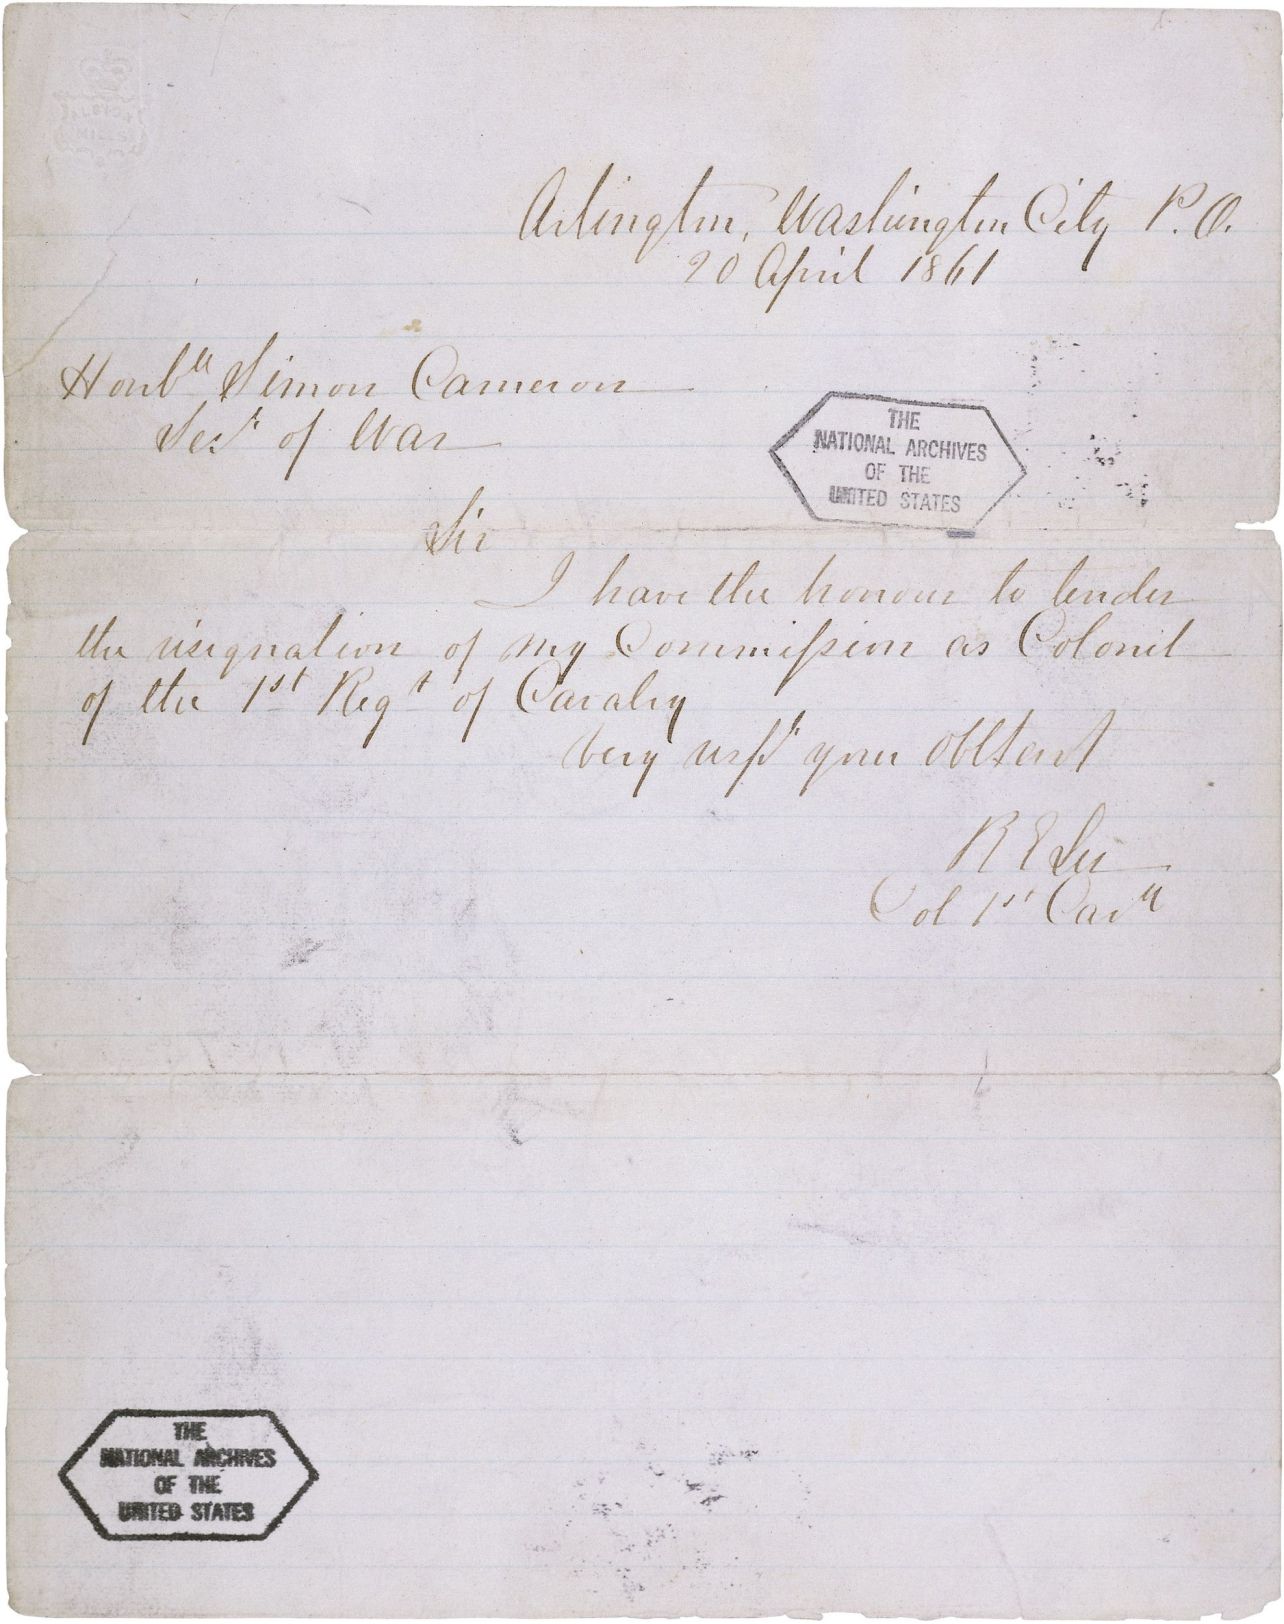 ALBION
MILLS
Arlington, Washington City P. O.
20 April 1861
Honble Simon Cameron
Secy of War
THE
NATIONAL ARCHIVES
OF THE
UNITED STATES
Sir
I have the honour to tender
the resignation of my Commission as Colonel
of the 1st Regt of Cavalry
Very respy your Obt Servt
R E Lee
Col 1st Cavy
THE
NATIONAL ARCHIVES
OF THE
UNITED STATES